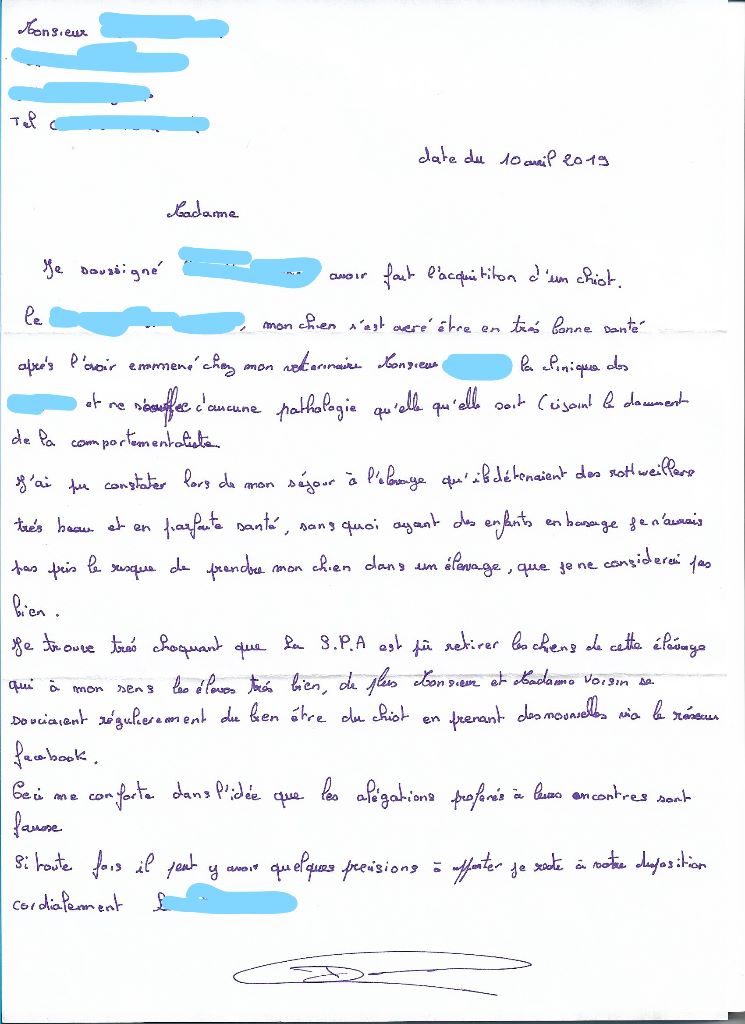 Monsieur
Tel
date du 10 avril 2019
Madame
Je soussigné avoir fait l'acquitition d'un chiot.
le , mon chien s'est averé être en trés bonne santé
aprés l'avoir emmené chez mon veterinaire Monsieur la clinique des
et ne d'aucune pathologie qu'elle qu'elle soit (visant le document
de la comportementaliste.
J'ai pu constater lors de mon séjour à l'élevage qu'il détenaient des rottweillers
trés beau et en parfaite santé, sans quoi ayant des enfants en basage je n'aurais
pas pris le risque de prendre mon chien dans un élevage, que je ne considerai pas
bien.
Je trouve trés choquant que la S.P.A est pû retirer les chiens de cette élévage
qui à mon sens les éleves trés bien, de plus Monsieur et Madame Voisin se
souciaient régulierement du bien être du chiot en prenant des nouvelles via le réseau
facebook.
Ceci me conforte dans l'idée que les alégations proferés à leurs encontres sont
fausse
Si toute fois il peut y avoir quelques precisions à apporter je reste à votre disposition
cordialement